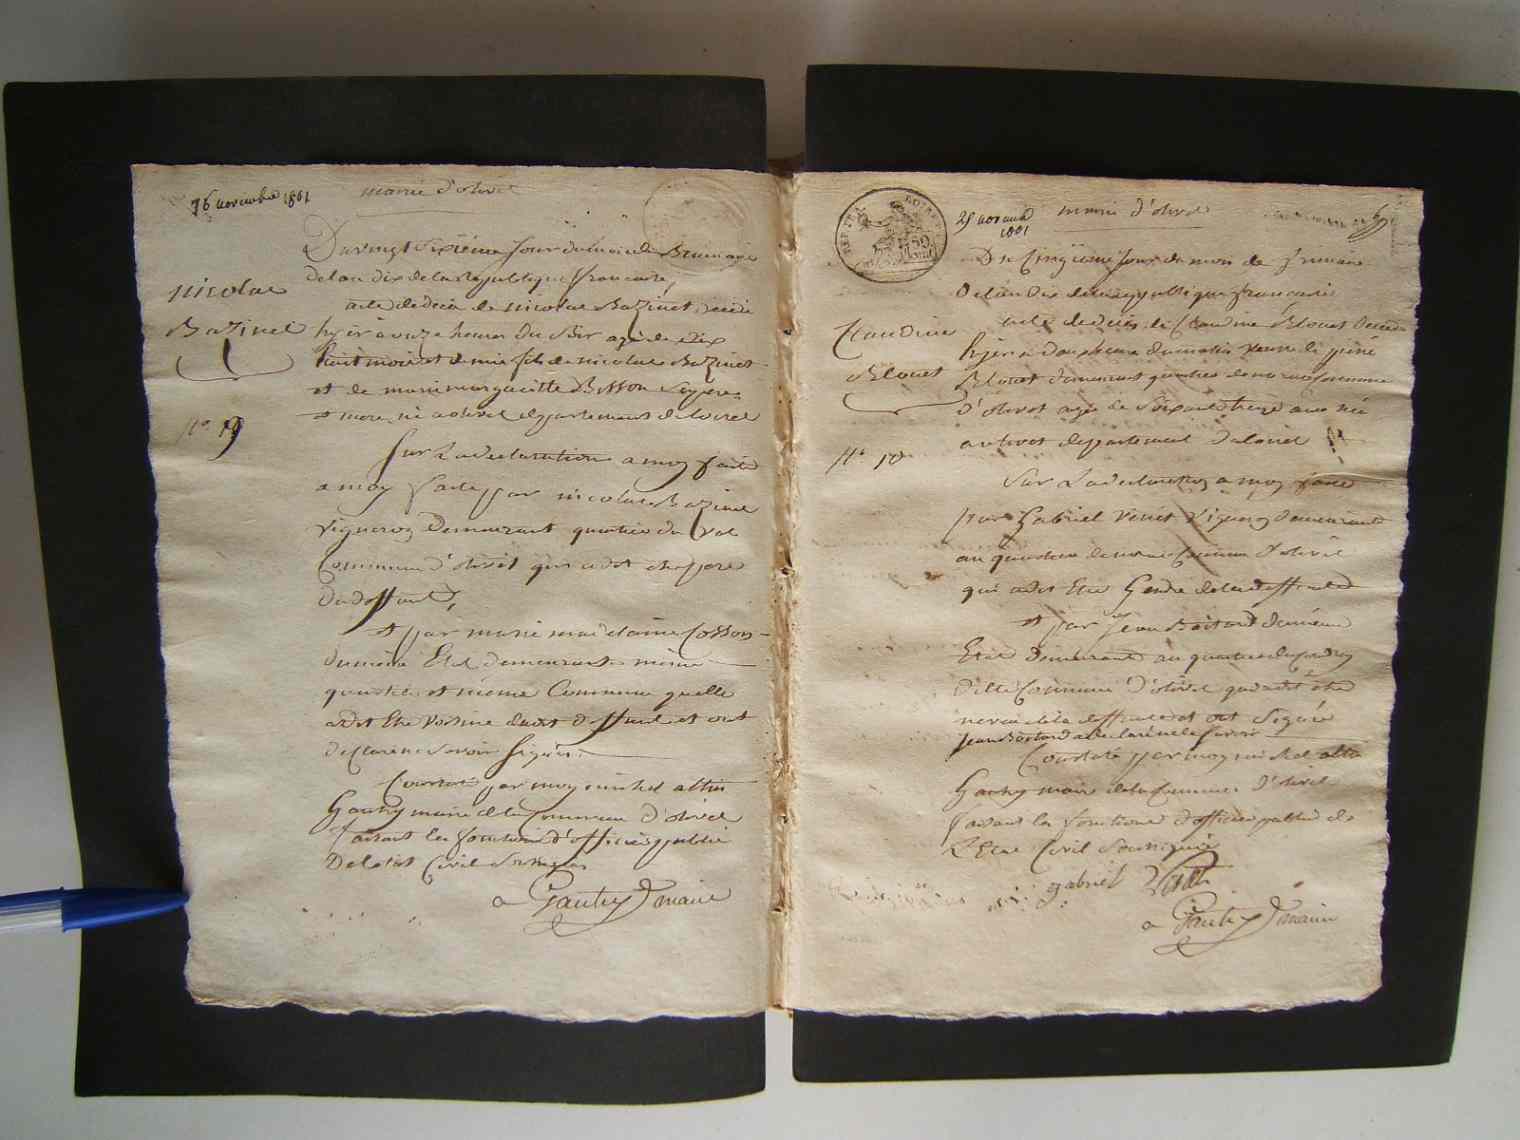 16 novembre 1801
mairie d'olivet
Du vingt sixiéme Jour du mois de Brumaire
de lan dix de la Republique francaise,
acte de deces de nicolas Bazinet decedé
hyer a onze heures du Soir agé de dix
huit mois et demie fils de nicolas Bazinet
et de marie margueritte Besson Ses pere
et mere, né a olivet departement du loiret
Sur La declaration a moy faite
a moy faite par nicolas Bazinet
vigneron Demeurant quartier du val
Commune d'olivet qui a dit etre pere
du deffunt,
et par marie madelaine Cosson
du même Etat demeurante même
quartier et même Commune quelle
a dit Etre voisine dudit deffunt et ont
declaré ne Savoir Signer.
Constaté par moy michel
Gautry maire de la commune d'olivet
faisant les fonctions d'officier public
De letat Civil Soussigné
Gautry maire
nicolas
Bazinet
n° 9
REP. FRA.
25 novembre
1801
mairie d'olivet
Du Cinqiéme Jour du mois de frimaire
De lan dix de la republique francaise
acte de deces de Claudine Blouet Decedée
hyer a heure du matin veuve de
Blouet demeurant quartier de commune
d'olivet agée de Soixante treize ans née
a olivet departement du loiret
Sur La declaration a moy faite
par Gabriel vigneron demeurant
au quartier de Commune d'olivet
qui a dit Etre Gendre de la deffunte
et par Jean Boitard du même
Etat Demeurant au quartier du
dite Commune d'olivet qui a dit être
de la deffunte et ont Signé
Jean Boitard a declaré ne le Savoir
Constaté par moy michel
Gautry maire de la Commune d'olivet
faisant les fonctions d'officier public de
L'Etat Civil Soussigné
gabriel
Gautry maire
Claudine
Blouet
n° 10